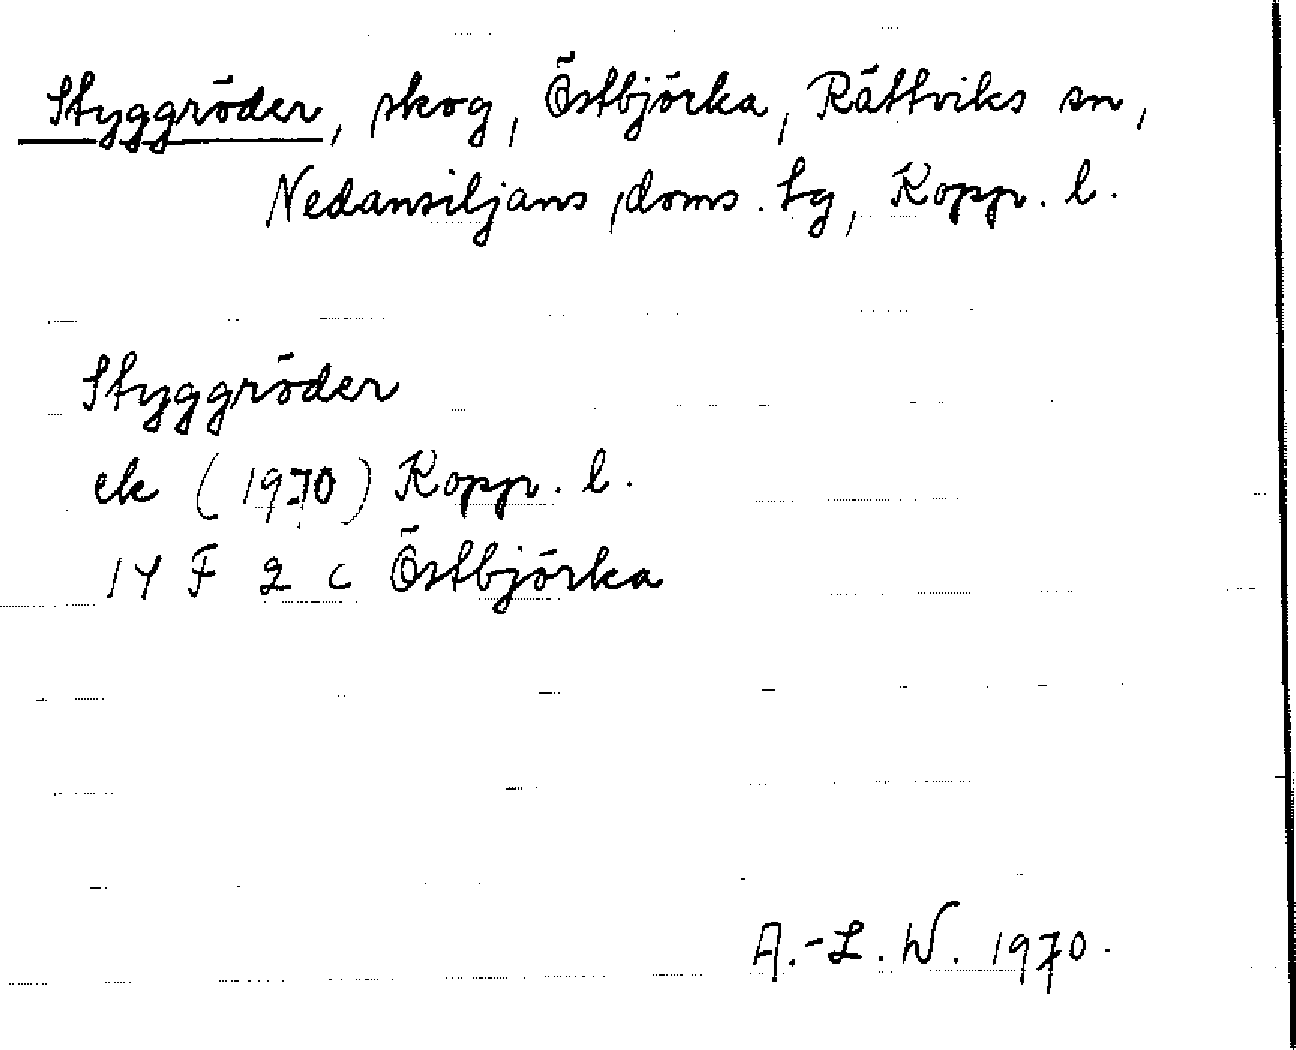 Styggröder, skog, Östbjörka, Rättviks sn,
Nedansiljans doms. tg, Kopp. l.
Styggröder
ek (1970) Kopp. l.
14 F 2 c Östbjörka
A.-L. W. 1970.